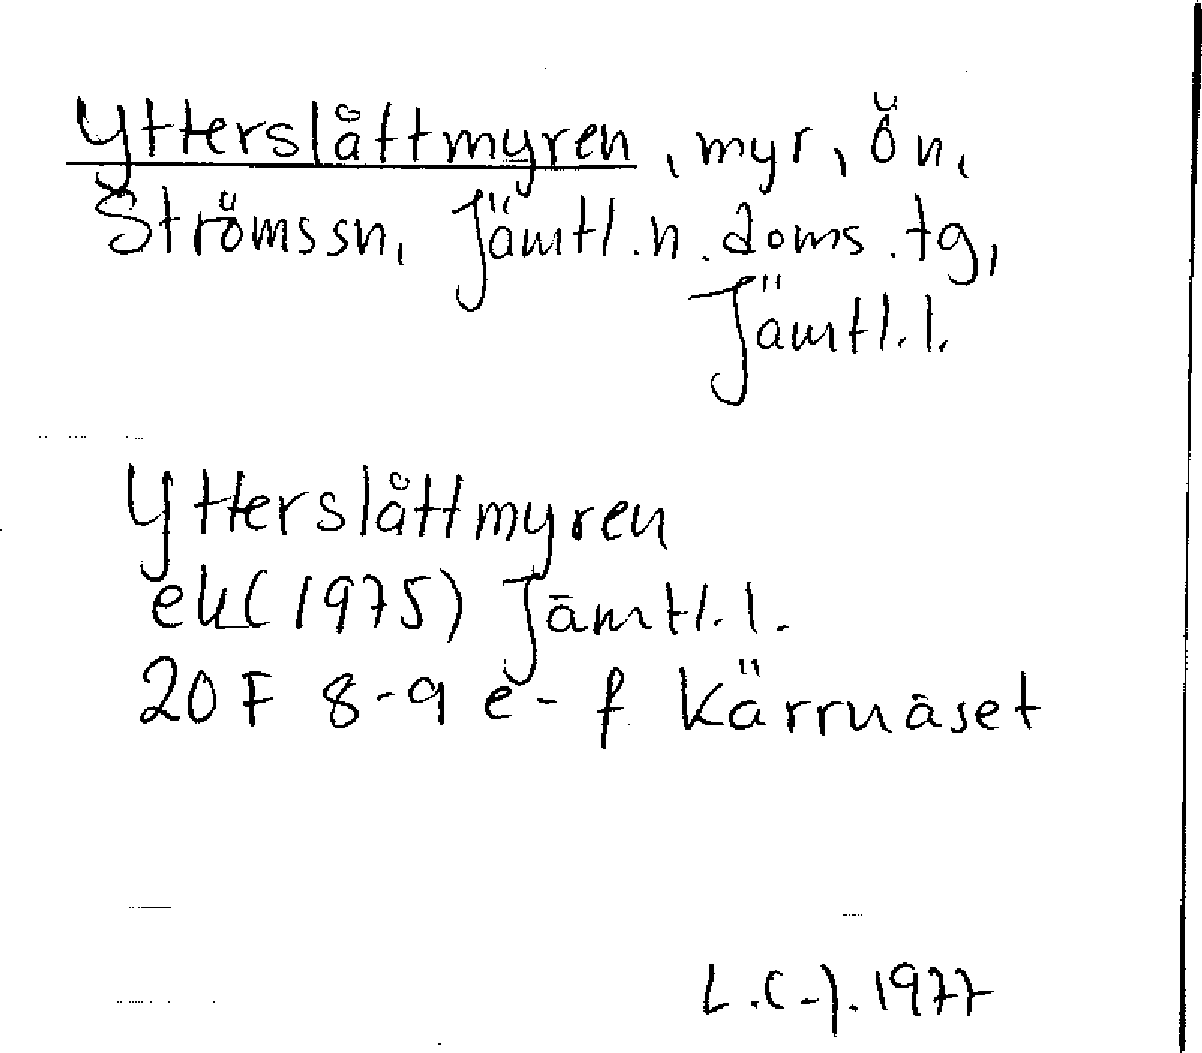 Ytterslåttmyren, myr, Ön,
Ströms sn, Jämtl. n. doms. tg,
Jämtl. l.
Ytterslåttmyren
ek (1975) Jämtl. l.
20 F 8-9 e-f Kärrnäset
L.C-j. 1977